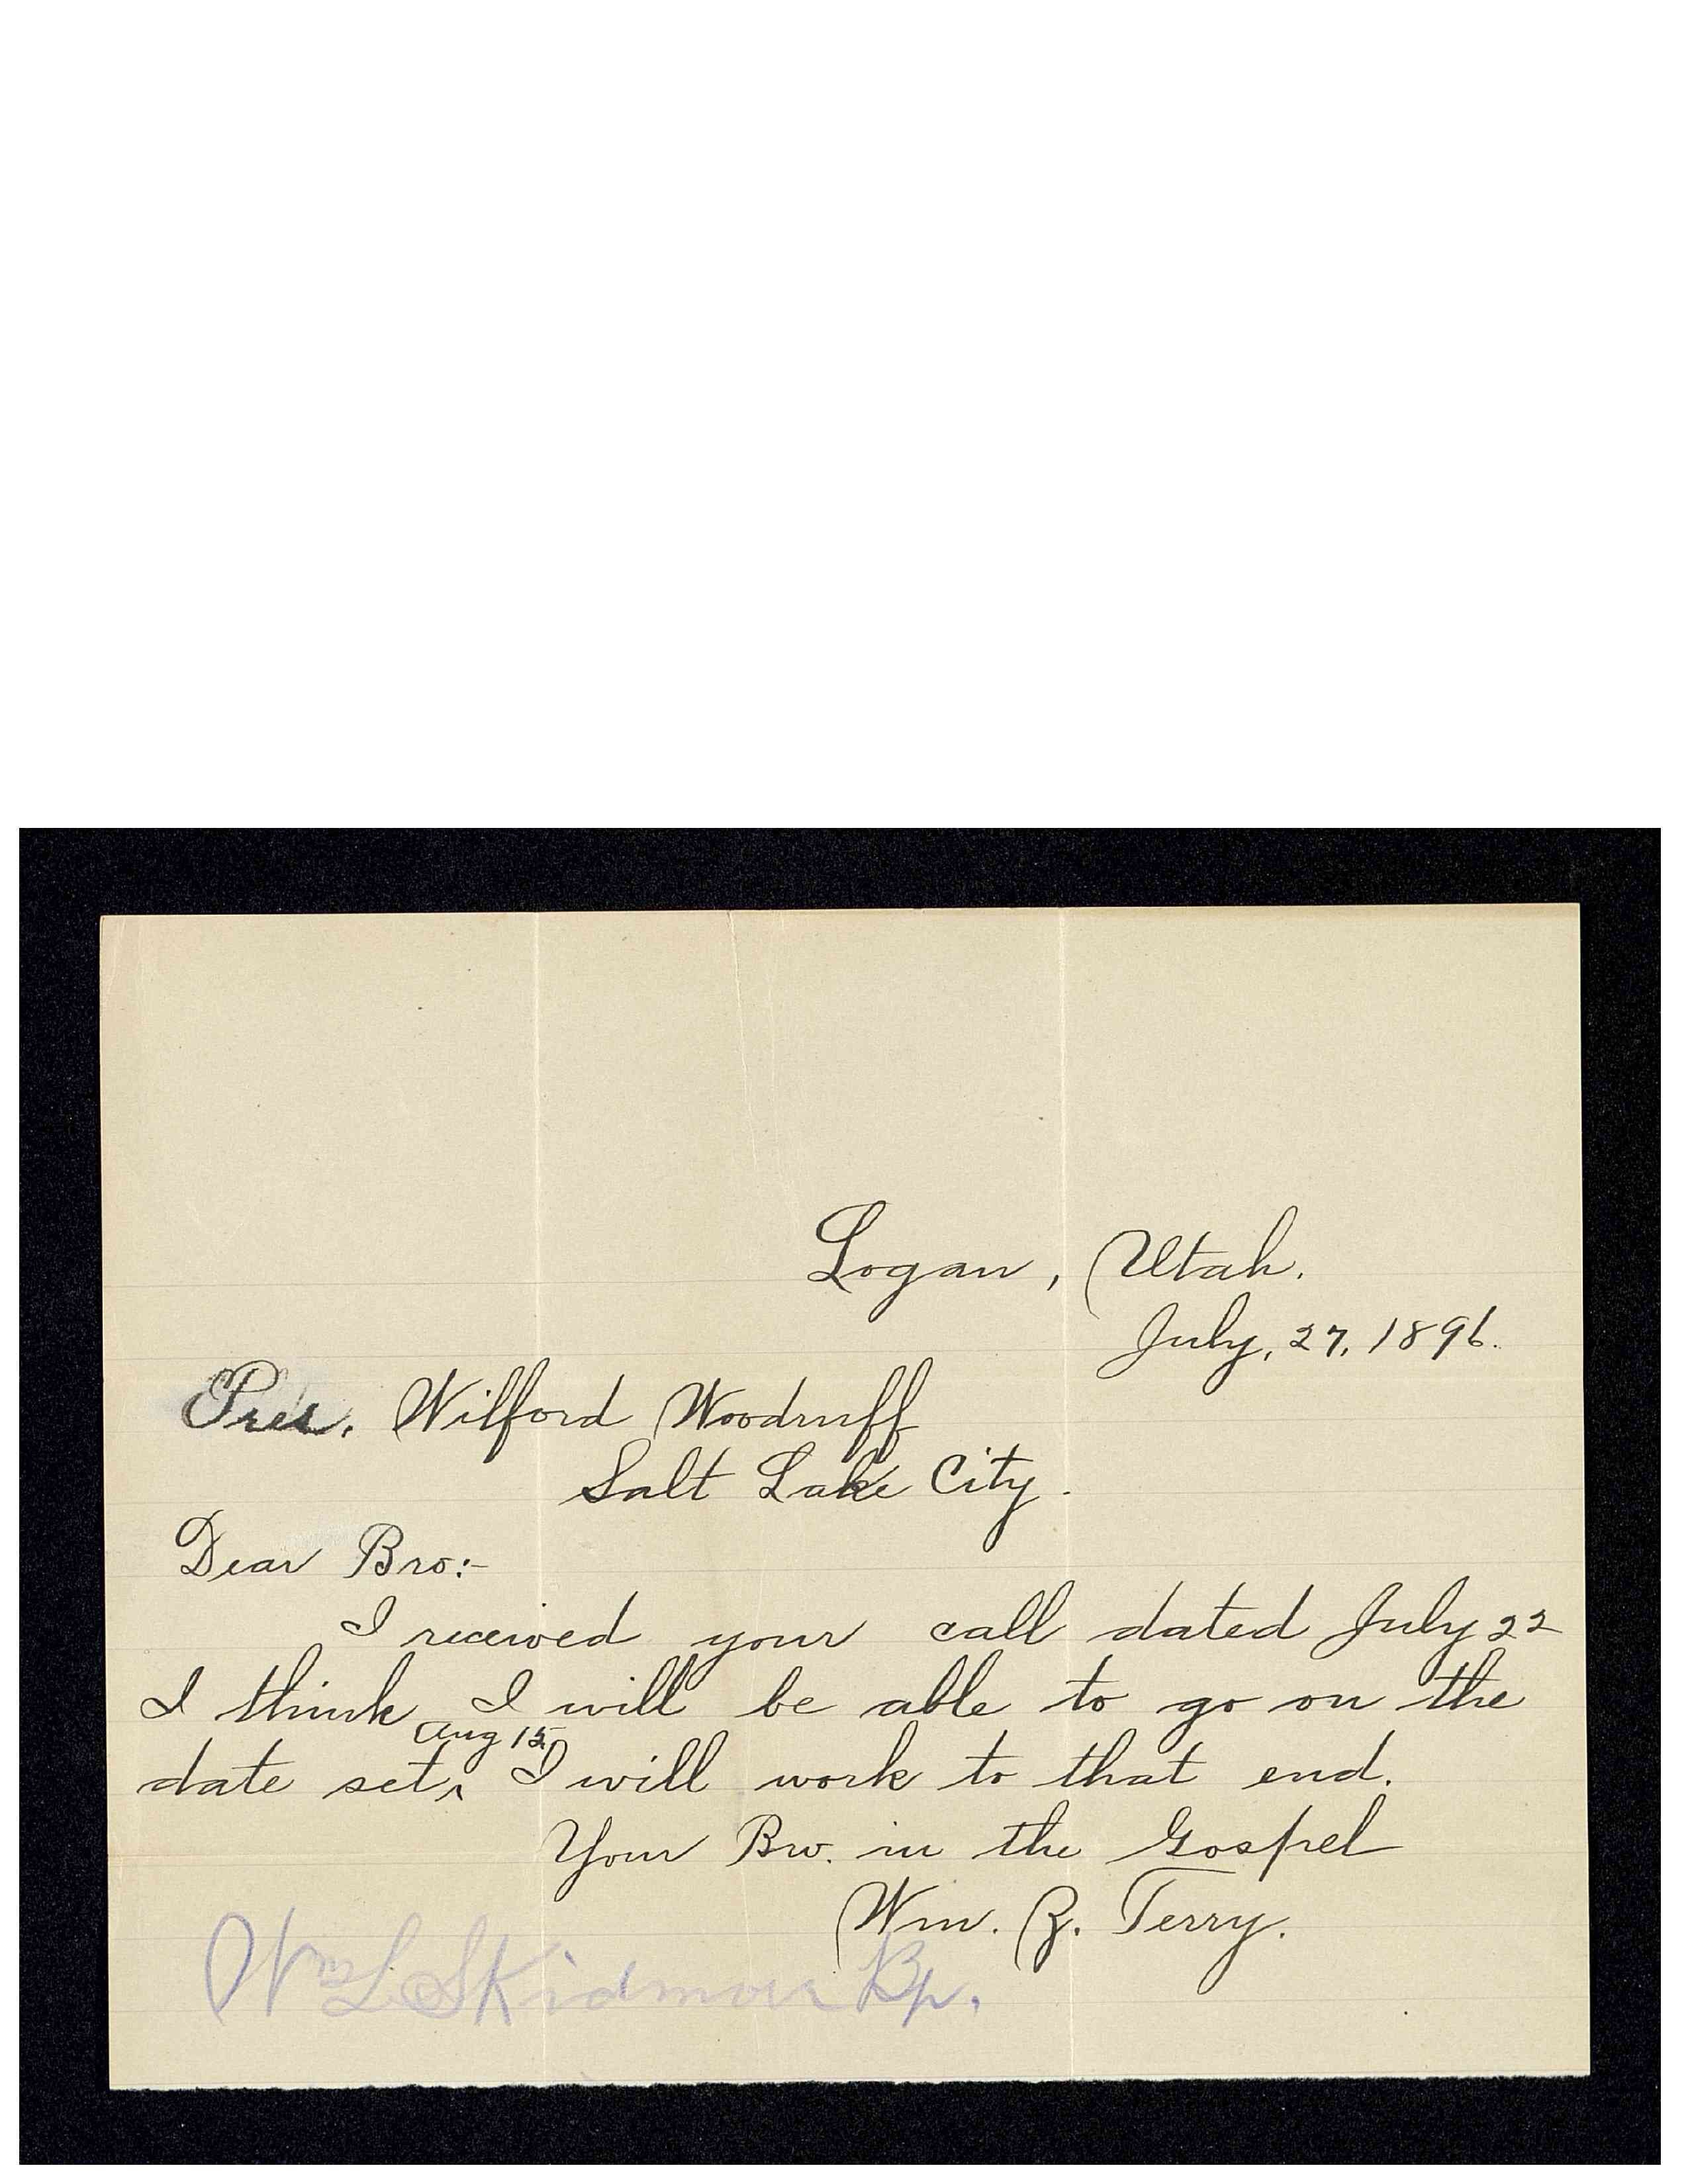 Logan, Utah.
July, 27, 1896.
Pres. Wilford Woodruff
Salt Lake City.
Dear Bro:-
I received your call dated July 22
I think I will be able to go on the
Aug 15.
date set, ^ I will work to that end.
Your Bro. in the Gospel
Wm. Z. Terry.
Wm L Skidmore Bp.